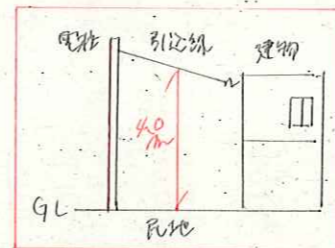 電柱 引込線 建物
4.0m
GL
民地